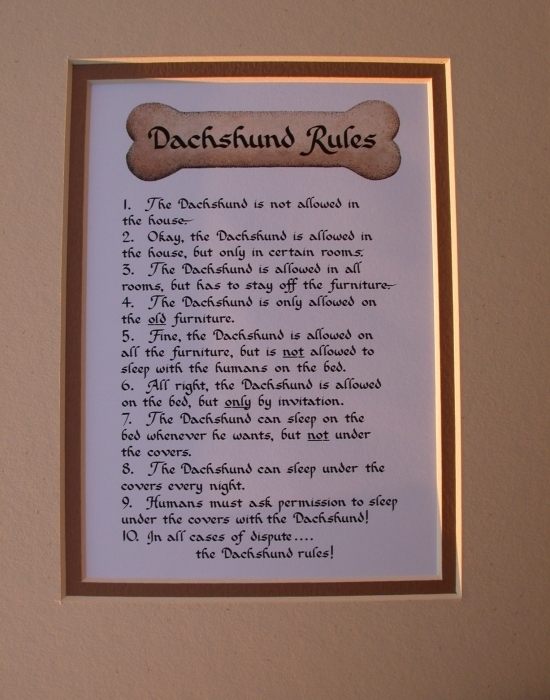 Dachshund Rules
1. The Dachshund is not allowed in
the house.
2. Okay, the Dachshund is allowed in
the house, but only in certain rooms.
3. The Dachshund is allowed in all
rooms, but has to stay off the furniture.
4. The Dachshund is only allowed on
the old furniture.
5. Fine, the Dachshund is allowed on
all the furniture, but is not allowed to
sleep with the humans on the bed.
6. All right, the Dachshund is allowed
on the bed, but only by invitation.
7. The Dachshund can sleep on the
bed whenever he wants, but not under
the covers.
8. The Dachshund can sleep under the
covers every night.
9. Humans must ask permission to sleep
under the covers with the Dachshund!
10. In all cases of dispute....
the Dachshund rules!